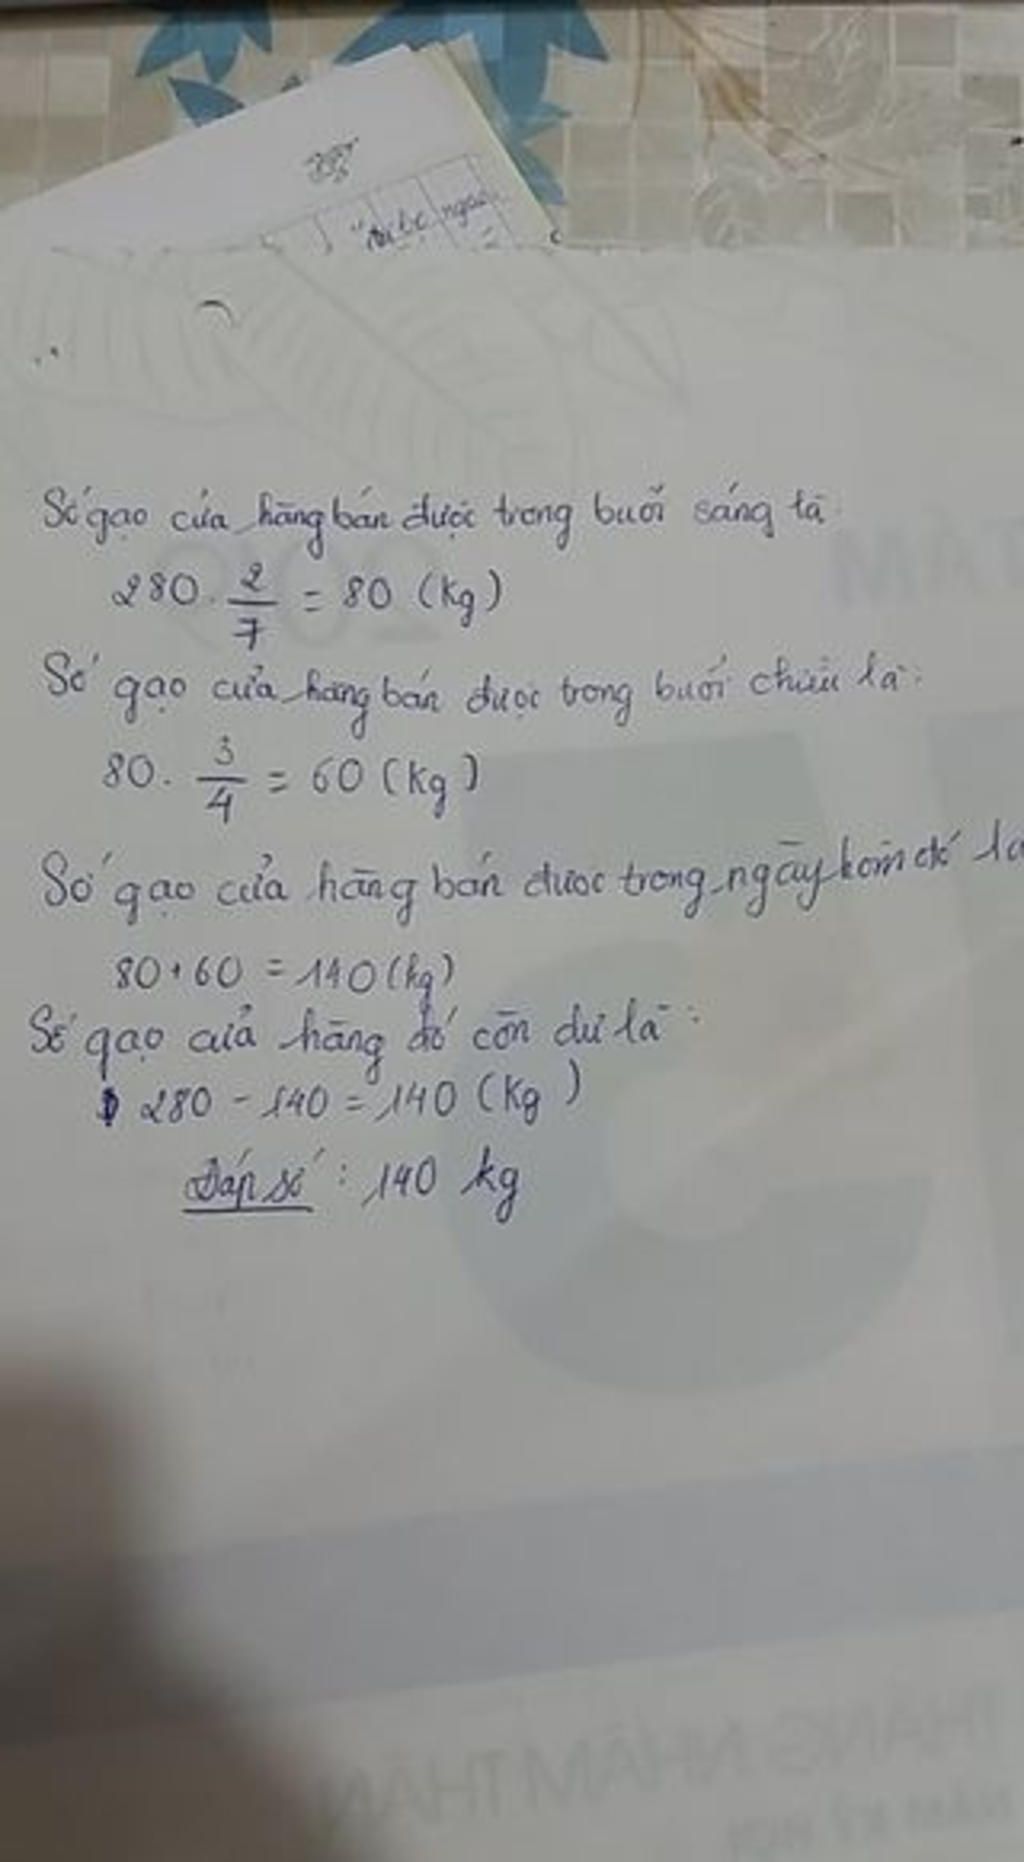 ngao
Số gạo cửa hàng bán được trong buổi sáng là
280 . 2/7 = 80 (kg)
Số gạo cửa hàng bán được trong buổi chiều là :
80 . 3/4 = 60 (kg)
Số gạo cửa hàng bán được trong ngày hôm đó là
80 + 60 = 140 (kg)
Số gạo cửa hàng đó còn dư là :
280 - 140 = 140 (kg)
Đáp số : 140 kg
THÁNG NHÂM THÂN
NĂM KỶ HỢI